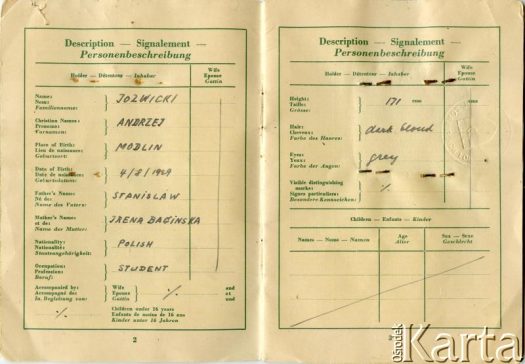 Description — Signalement —
Personenbeschreibung
Holder — Détenteur — Inhaber
Wife
Epouse
Gattin
Name:
Nom:
Familienname:
JOZWICKI
Christian Names:
Prenoms:
Vornamen:
ANDRZEJ
Place of Birth:
Lieu de naissance:
Geburtsort:
MODLIN
Date of Birth:
Date de naissance:
Geburtsdatum:
4/8/1929
Father's Name:
Né de:
Name des Vaters:
STANISLAW
Mother's Name:
et de:
Name der Mutter:
IRENA BAGINSKA
Nationality:
Nationalité:
Staatsangehörigkeit:
POLISH
Occupation:
Profession:
Beruf:
STUDENT
Accompanied by
Accompagné de:
In Begleitung von:
Wife
Epouse
Gattin
%
and
et
und
%
Children under 16 years
Enfants de moins de 16 ans
Kinder unter 16 Jahren
2
Description — Signalement —
Personenbeschreibung
Holder — Détenteur — Inhaber
Wife
Epouse
Gattin
Height:
Taille:
Grösse:
171 cms
cms
Hair:
Cheveux:
Farbe des Haares:
dark blond
Eyes:
Yeux:
Farbe der Augen:
grey
Visible distinguishing
marks:
Signes particuliers:
Besondere Kennzeichen:
%
Children — Enfants — Kinder
Names — Noms — Namen
Age
Alter
Sex — Sexe
Geschlecht
3
ośrodek
Karta
www.karta.org.pl